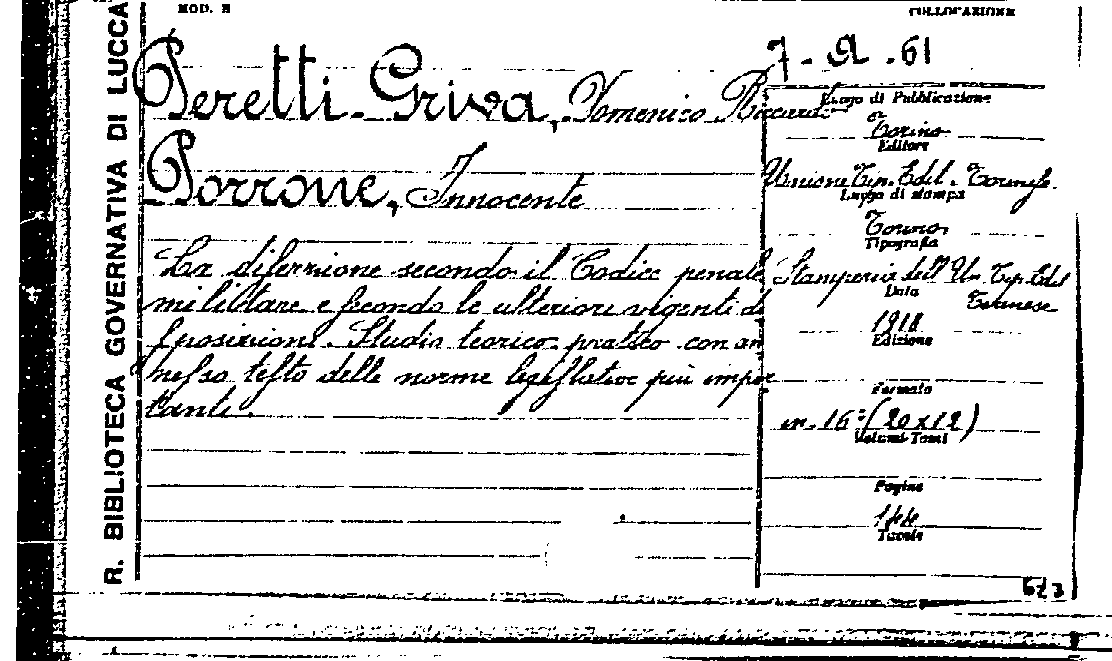 MOD. B
COLLOCAZIONE
R. BIBLIOTECA GOVERNATIVA DI LUCCA
7 - A - 61
Peretti-Griva, Domenico Riccardo
Porrone, Innocente
La diserzione secondo il Codice penale
militare e secondo le ulteriori vigenti di
sposizioni. Studio teorico pratico con an
nesso testo delle norme legislative più impor
tanti.
Luogo di Pubblicazione
Torino
Editore
Unione Tip. Edit. Torinese
Luogo di stampa
Torino
Tipografia
Stamperia dell'Un. Tip. Edit
Torinese
Data
1918
Edizione
Formato
in-16° (20x12)
Volumi-Tomi
Pagine
Tavole